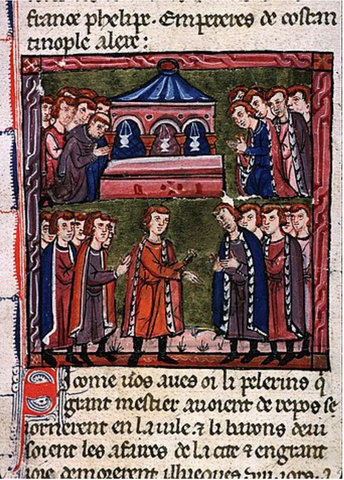 france phelipe. Empereres de costan
tinople alexe:
Si come uos aues oi li pelerins q̄
grant mestier auoient de repos se
tornerent en la uile ⁊ li barons deui
soient les afaires de la cite ⁊ en grant
ioie demorerent illueques